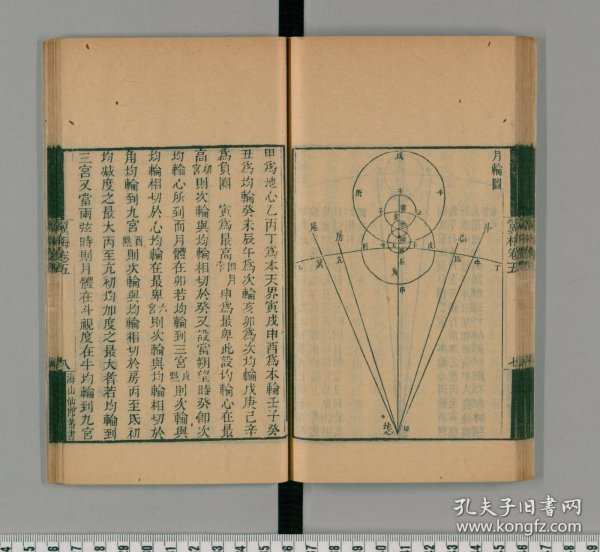 月輪圖
甲爲地心乙丙丁爲本天界寅戌申酉爲本輪壬子癸
丑爲均輪癸未辰午爲次輪亥卯爲次均輪戊庚己辛
爲負圈 寅爲最高 申爲最卑此設均輪心在最
高初宮則次輪與均輪相切於癸又設當朔望時癸卽次
均輪心所到而月體在卯若均輪到三宮 則次輪與
均輪相切於心均輪在最卑六宮則次輪與均輪相切於
角均輪到九宮 則次輪與均輪相切於房丙至氐初
均減度之最大丙至亢初均加度之最大者若均輪到
三宮又當兩弦時則月體在斗視度在牛均輪到九宮
卷五
八
海山仙館叢書
卷五
七
孔夫子旧书网
www.kongfz.com